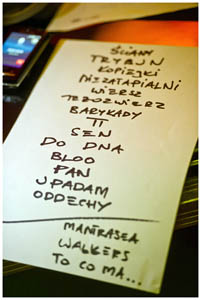 ŚCIANY
TRYBUN
KOPIEJKI
NIEZATAPIALNI
WIERSZ
TEDOZWIERZ
BARYKADY
TT
SEN
DO DNA
BLOO
PAN
UPADAM
ODDECHY
MANTRASEA
WALKERS
TO CO MA...